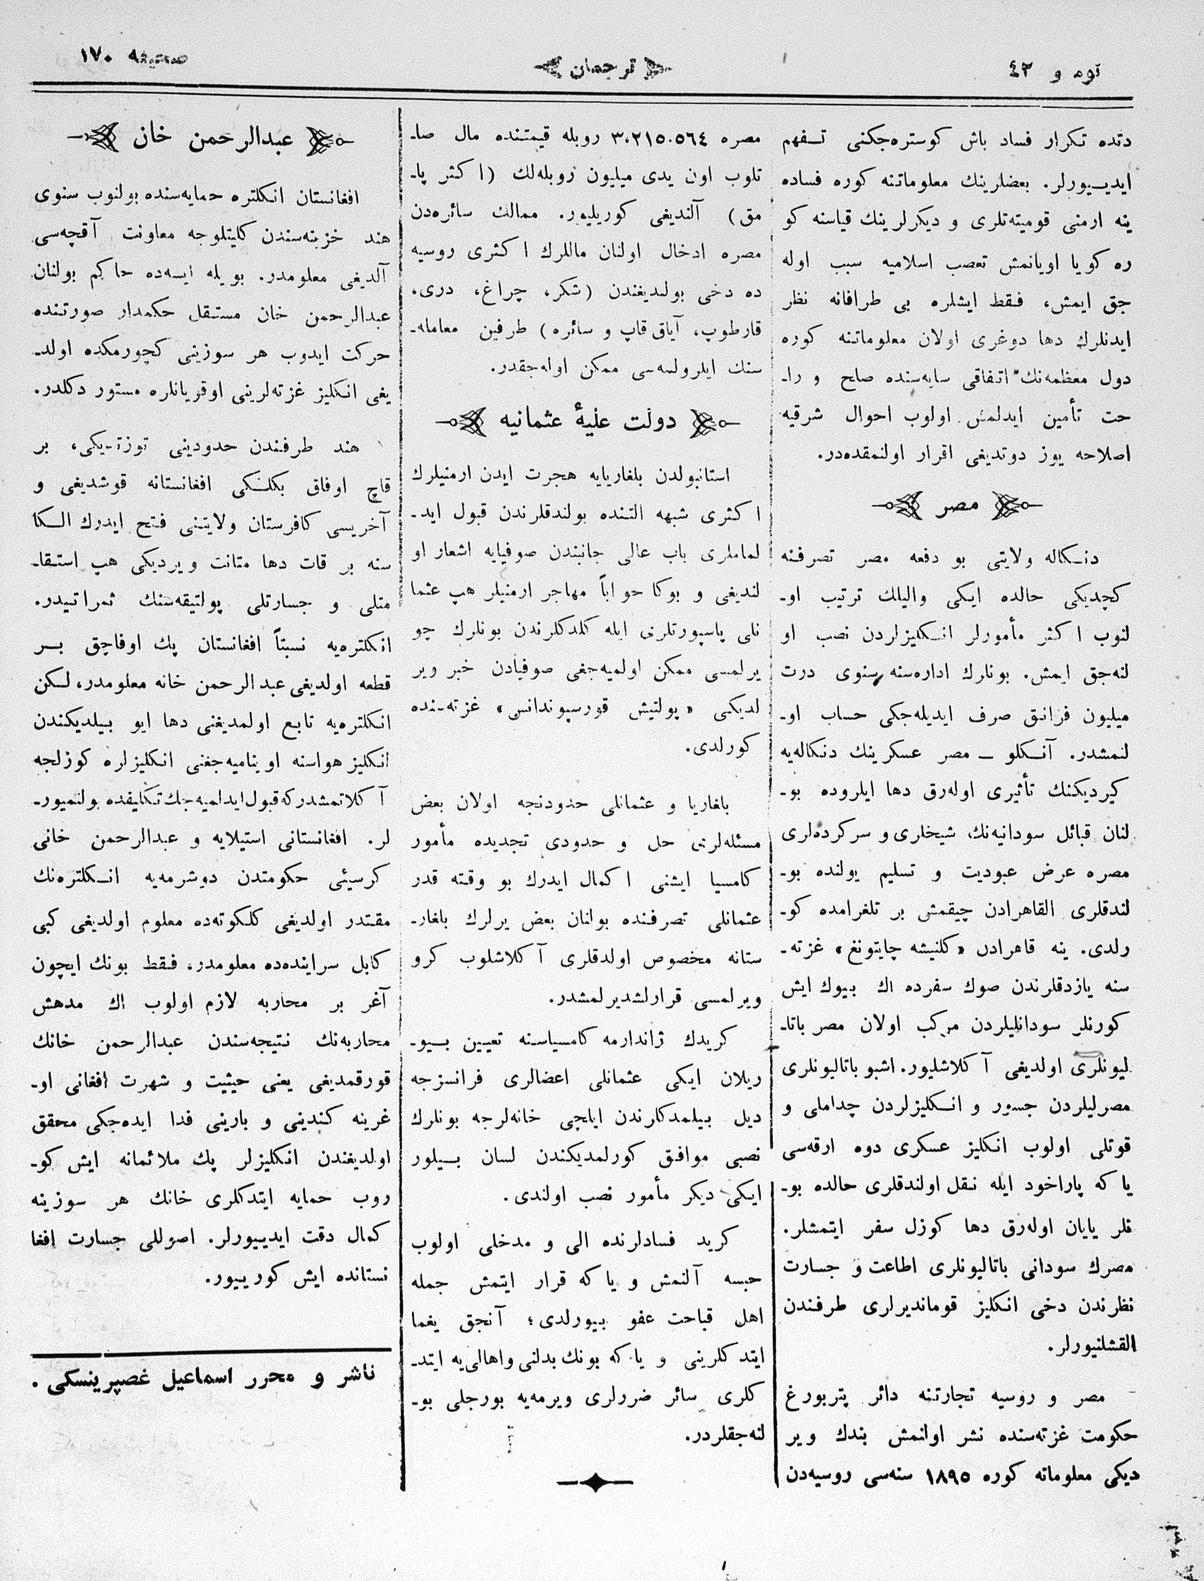 نومرو ٤٣
ترجمان
صحیفه ١٧٠
دتده تكرار فساد باش كوستره‌جكنی تـفهم
ایدیـیورلر. بعضلرینك معلوماتنه كوره فساده
ینه ارمنی قومیته‌تلری و دیكرلرینك قیاسنه كو
ره كویا اویانمش تعصب اسلامیه سبب اوله
جق ایمش، فـقط ایشلره بی طرافانه نظر
ایدنلرك دها دوغری اولان معلوماتنه كوره
دول معظمه‌نك اتفاقی سایه‌سنده صلح و را‌ـ
حت تأمین ایدلمش اولوب احوال شرقیه
اصلاحه یوز دوتدیغی اقرار اولنمقده‌در.
مصر
دنـكاله ولایتی بو دفعه مصر تصرفـنه
كچدیكی حالده ایكی والیلك ترتیب او‌ـ
لنوب اكثر مأمورلر انـكلیزلردن نصب او
لنه‌جق ایمش. بونلرك اداره‌سنه سنوی درت
میلیون فرانق صرف ایدیله‌جكی حساب او‌ـ
لنمشدر. آنـكلو ـ مصر عسكرینك دنكاله‌یه
كیردیكنك تأثیری اوله‌رق دها ایلروده بو‌ـ
لنان قبائل سودانیه‌نك، شیخلری و سركرده‌لری
مصره عرض عبودیت و تسلیم یولنده بو‌ـ
لندقلری القاهرادن چیقمش بر تلغرامده كو‌ـ
رلدی. ینه قاهرادن «كلنیشه چایتونغ» غزته‌ـ
سنه یازدقلرندن صوك سفرده اك بیوك ایش
كورنلر سودانلیلردن مركب اولان مصر باتا‌ـ
لیونلری اولدیغی آكلاشلیور. اشبو باتالیونلری
مصرلیلردن جسور و انـكلیزلردن چداملی و
قوتلی اولوب انكلیز عسكری دوه ارقه‌سی
یا كه پاراخود ایله نـقل اولندقلری حالده بو‌ـ
نلر یایان اوله‌رق دها كوزل سفر ایتمشلر.
مصرك سودانی باتالیونلری اطاعت و جسارت
نظرندن دخی انـكلیز قوماندیرلری طرفـندن
القشلنیورلر.
مصر و روسیه تجارتنه دائر پتربورغ
حكومت غزته‌سنده نشر اولنمش بندك ویر
دیكی معلوماته كوره ١٨٩٥ سنه‌سی روسیه‌دن
مصره ٣٠٢١٥٠٥٦٤ روبله قیمتنده مال صا‌ـ
تلوب اون یدی میلیون روبله‌لك (اكثر پا‌ـ
مق) آلندیغی كوریلیور. ممالك سائره‌دن
مصره ادخال اولنان ماللرك اكثری روسیه
ده دخی بولندیغندن (شكر، چراغ، دری،
قارطوپ، آیاق قاپ و سائره) طرفین معامله‌ـ
سنك ایلرولمه‌سی ممكن اوله‌جقدر.
دولت علیهٔ عثمانیه
استانبولدن بلغاریایه هجرت ایدن ارمنیلرك
اكثری شبهه التنده بولندقلرندن قبول اید‌ـ
لماملری باب عالی جانبندن صوفیایه اشعار او
لندیغی و بوكا جواباً مهاجر ارمنیلر هپ عثما
نلی پاسپورتلری ایله كلدكلرندن بونلرك چو
یرلمسی ممكن اولمیه‌جغی صوفیادن خبر ویر
لدیكی «پولتیش قورسپوندانس» غزته‌نـده
كورلدی.
بلغاریا و عثمانلی حدودنجه اولان بعض
مسئله‌لری حل و حدودی تجدیده مأمور
كامسیا ایشنی اكمال ایدرك بو وقته قدر
عثمانلی تصرفـنده بولنان بعض یرلرك بلغار‌ـ
ستانه مخصوص اولدقلری آكلاشلوب كرو
ویرلمسی قرارلشدیرلمشدر.
كریدك ژاندارمه كامسیاسنه تعیین بـیو‌ـ
ریلان ایكی عثمانلی اعضالری فرانسزجه
دیل بیلمدكلرندن ایلچی خانه‌لرجه بونلرك
نصبی موافق كورلمدیكندن لسان بـیلور
ایكی دیكر مأمور نصب اولندی.
كرید فسادلرنده الی و مدخلی اولوب
حبسه آلنمش و یا كه قرار ایتمش جمله
اهل قباحت عفو بیورلدی؛ آنجق یغما
ایتدكلرینی و یا كه بونك بدلنی و اهالی‌یه ایتد‌ـ
كلری سائر ضررلری ویرمه‌یه بورجلی بو‌ـ
لنه‌جقلردر.
عبدالرحمن خان
افغانستان انكلتره حمایه‌سنده بولنوب سنوی
هند خزینه‌سندن كلیتلوجه معاونت آقچه‌سی
آلدیغی معلومدر. بویله ایسه‌ده حاكم بولنان
عبدالرحمن خان مستقل حكمدار صورتنده
حركت ایدوب هر سوزینی كچورمكده اولد‌ـ
یغی انكلیز غزته‌لرینی اوقویانلره مستور دكلدر.
هند طرفندن حدودینی بر
قاچ اوفاق بكلـكی افغانستانه قوشدیغی و
آخریسی كافرستان ولایتنی فتح ایدرك الـكا
سنه بر قات دها متانت ویردیكی هپ استقا‌ـ
متلی و جسارتلی پولتیقه‌سنك ثمراتیدر.
انكلتره‌یه نسبتاً افغانستان پك اوفاچق بـر
قطعه اولدیغی عبدالرحمن خانه معلومدر، لـكن
انكلتره‌یه تابع اولمدیغنی دها ایو بیلدیكندن
انـكلیز هواسنه اوینامیه‌جغنی انكلیزلره كوزلجه
آكلاتمشدر كه قبول ایدلمیه‌جك تكلیفده بولنمیور‌ـ
لر. افغانستانی استیلایه و عبدالرحمن خانی
كرسیئی حكومتدن دوشرمه‌یه انـكلتره‌نك
مقـتدر اولدیغی كلكوته‌ده معلوم اولدیغی كبی
كابل سراینده‌ده معلومدر، فـقط بونك ایچون
آغر بر محاربه لازم اولوب اك مدهش
محاربه‌نك نتیجه‌سندن عبدالرحمن خانك
قورقمدیغی یعنی حیثیت و شهرت افغانی او‌ـ
غرینه كندینی و بارینی فدا ایده‌جكی محقق
اولدیغندن انكلیزلر پك ملائمانه ایش كو‌ـ
روب حمایه ایتدكلری خانك هر سوزینه
كمال دقت ایدیـیورلر. اصوللی جسارت افغا
نستانده ایش كوریـیور.
ناشر و محرر اسماعیل غصپرینسكی.